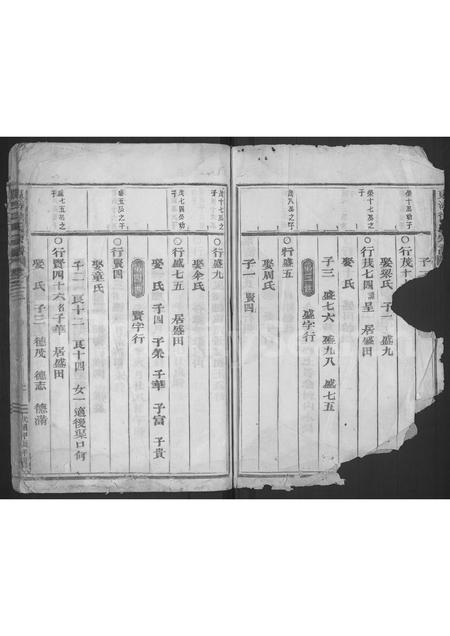 子一
榮十㒷幼子
○行茂十
娶梁氏 子一 盛九
榮十七㒷之子
○行茂七四 諱呈 居盛田
娶 氏
子三 盛七六 盛九八 盛七五
盛字行
茂八㒷之子
○行盛五
娶周氏
子一 賢四
茂十七㒷之子
○行盛九
娶余氏
茂七四㒷幼子
○行盛七五 居盛田
娶 氏 子四 子榮 子華 子富 子貴
賢字行
盛五㒷之子
○行賢四
娶童氏
子二 良十二 良十四 女一適後渠口何
盛七五㒷之子
○行賢四十六 名子華 居盛田
娶 氏 子三 德茂 德志 德滿